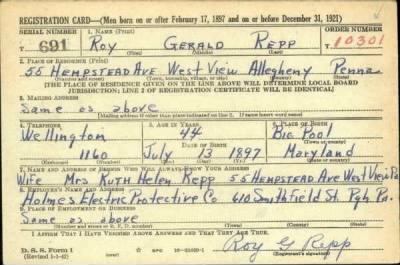 REGISTRATION CARD—(Men born on or after February 17, 1897 and on or before December 31, 1921)
SERIAL NUMBER 1. NAME (Print) ORDER NUMBER
T 691 Roy Gerald Repp 10301
(First) (Middle) (Last)
2. PLACE OF RESIDENCE (Print)
55 Hempstead Ave West View Allegheny Penna
(Number and street) (Town, township, village, or city) (County) (State)
[THE PLACE OF RESIDENCE GIVEN ON THE LINE ABOVE WILL DETERMINE LOCAL BOARD
JURISDICTION; LINE 2 OF REGISTRATION CERTIFICATE WILL BE IDENTICAL]
3. MAILING ADDRESS
Same as above
[Mailing address if other than place indicated on line 2. If same insert word same]
4. TELEPHONE 5. AGE IN YEARS 6. PLACE OF BIRTH
Wellington 44 Big Pool
DATE OF BIRTH (Town or county)
1160 July 13 1897 Maryland
(Exchange) (Number) (Mo.) (Day) (Yr.) (State or country)
7. NAME AND ADDRESS OF PERSON WHO WILL ALWAYS KNOW YOUR ADDRESS
Wife Mrs Ruth Helen Repp 55 Hempstead Ave West View Pa
8. EMPLOYER'S NAME AND ADDRESS
Holmes Electric Protective Co 610 Smithfield St. Pgh Pa.
9. PLACE OF EMPLOYMENT OR BUSINESS
Same as above
(Number and street or R. F. D. number) (Town) (County) (State)
I AFFIRM THAT I HAVE VERIFIED ABOVE ANSWERS AND THAT THEY ARE TRUE.
D. S. S. Form 1
(Revised 1-1-42) (over) Roy G Repp
(Registrant's signature)